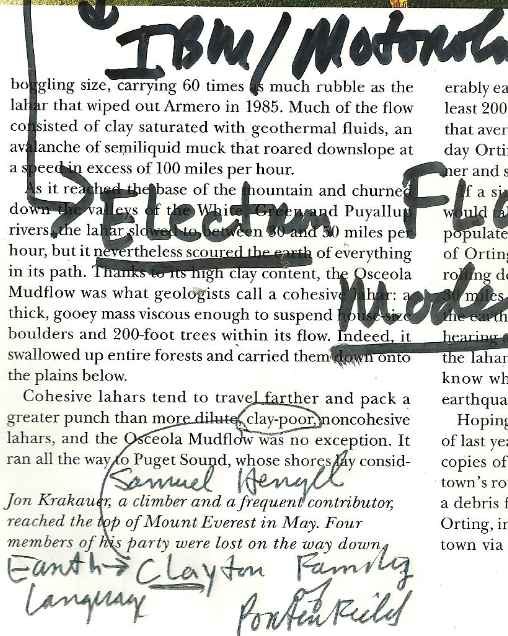 IBM/Motorola
boggling size, carrying 60 times as much rubble as the
lahar that wiped out Armero in 1985. Much of the flow
consisted of clay saturated with geothermal fluids, an
avalanche of semiliquid muck that roared downslope at
a speed in excess of 100 miles per hour.
As it reached the base of the mountain and churned
down the valleys of the White, Green and Puyallup
rivers, the lahar slowed to between 30 and 50 miles per
hour, but it nevertheless scoured the earth of everything
in its path. Thanks to its high clay content, the Osceola
Mudflow was what geologists call a cohesive lahar: a
thick, gooey mass viscous enough to suspend house-size
boulders and 200-foot trees within its flow. Indeed, it
swallowed up entire forests and carried them down onto
the plains below.
Cohesive lahars tend to travel farther and pack a
greater punch than more dilute, clay-poor, noncohesive
lahars, and the Osceola Mudflow was no exception. It
ran all the way to Puget Sound, whose shores lay consid-
Jon Krakauer, a climber and a frequent contributor,
reached the top of Mount Everest in May. Four
members of his party were lost on the way down.
erably ea
least 200
that aver
day Orti
ner and s
If a si
would ta
populate
of Orting
rolling de
30 miles
the earth
hearing
the lahar
know wh
earthqua
Hoping
of last yea
copies of
town's ro
a debris f
Orting, in
town via
Flo
Samuel
Earth Clayton Family
Language of